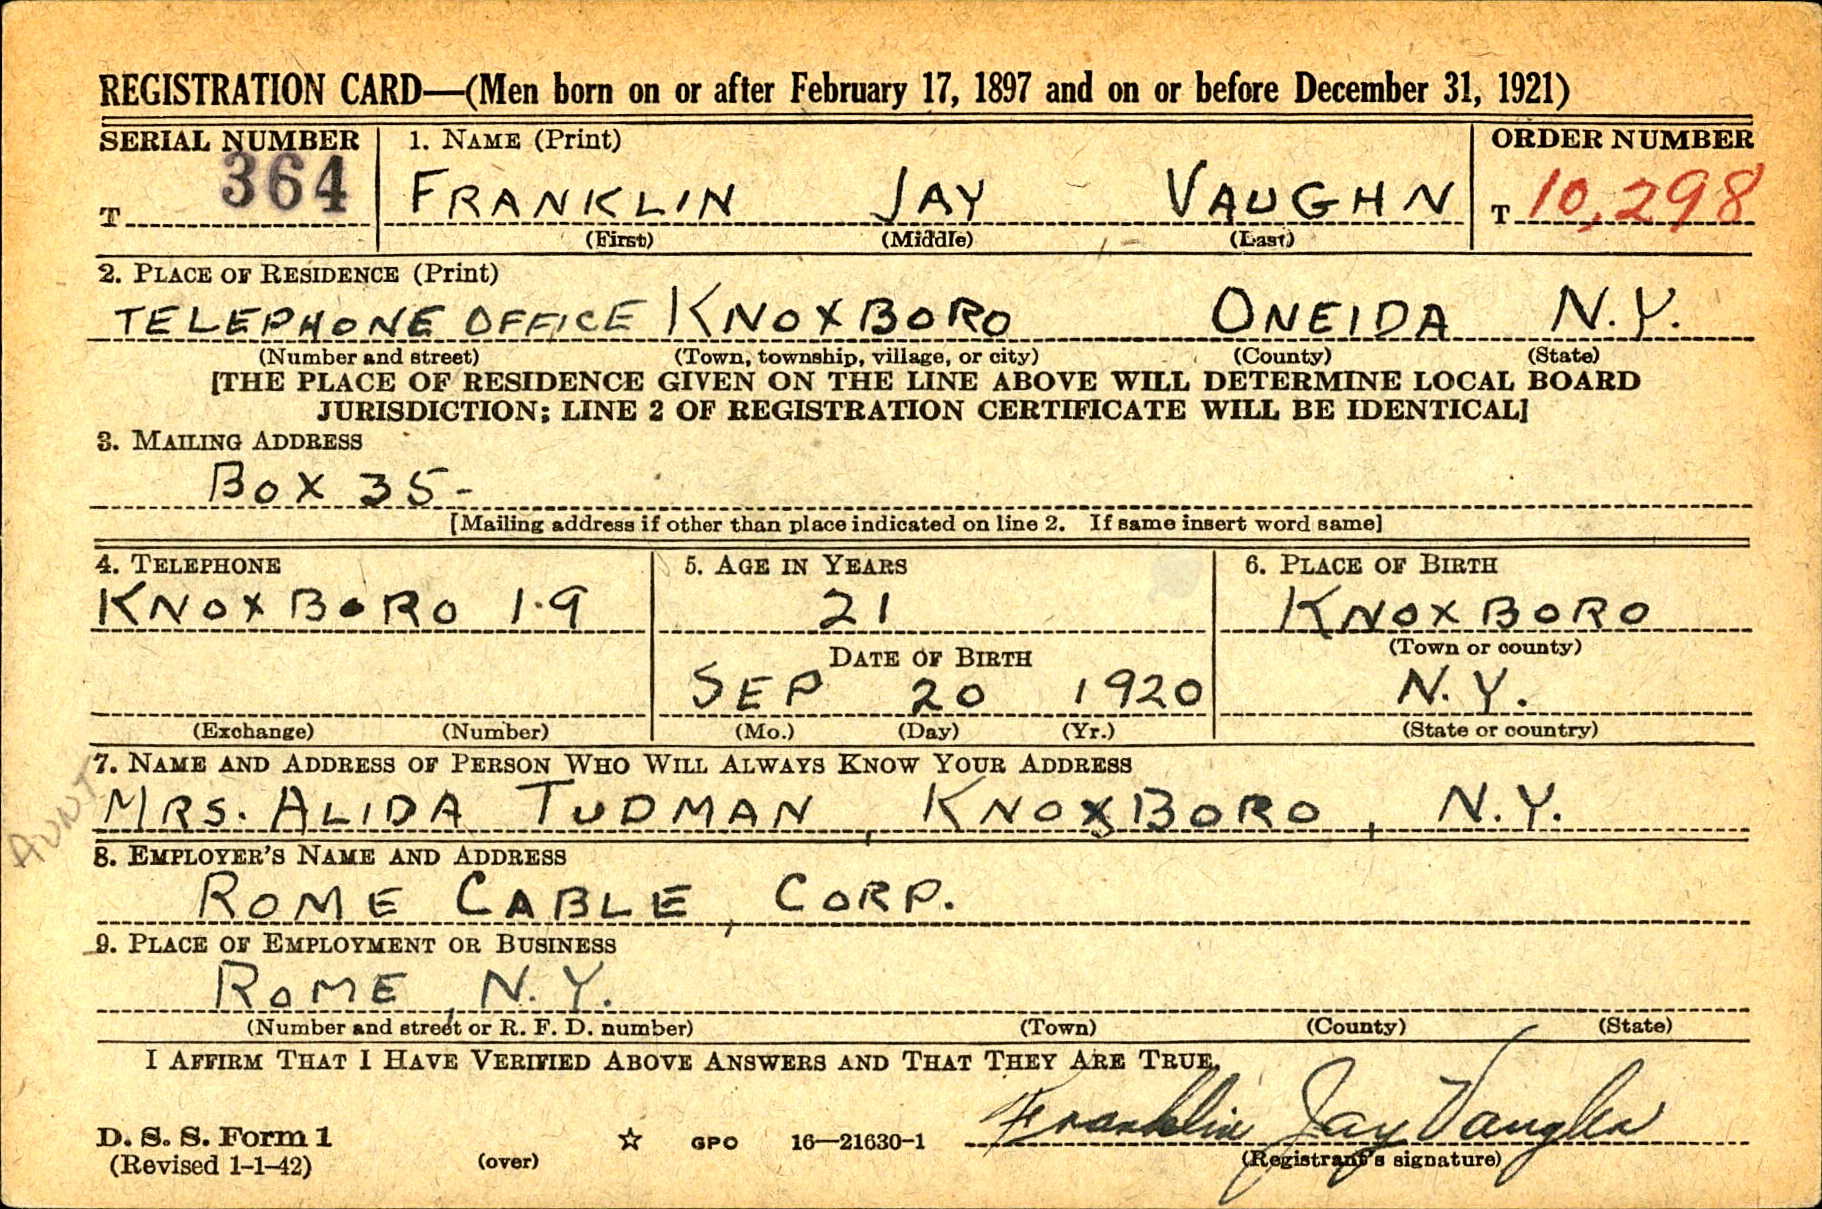 REGISTRATION CARD—(Men born on or after February 17, 1897 and on or before December 31, 1921)
SERIAL NUMBER 1. NAME (Print) ORDER NUMBER
T 364 FRANKLIN JAY VAUGHN T 10,298
(First) (Middle) (Last)
2. PLACE OF RESIDENCE (Print)
TELEPHONE OFFICE KNOXBORO ONEIDA N.Y.
(Number and street) (Town, township, village, or city) (County) (State)
[THE PLACE OF RESIDENCE GIVEN ON THE LINE ABOVE WILL DETERMINE LOCAL BOARD
JURISDICTION; LINE 2 OF REGISTRATION CERTIFICATE WILL BE IDENTICAL]
3. MAILING ADDRESS
BOX 35-
[Mailing address if other than place indicated on line 2. If same insert word same]
4. TELEPHONE 5. AGE IN YEARS 6. PLACE OF BIRTH
KNOXBORO 1-9 21 KNOXBORO
DATE OF BIRTH (Town or county)
SEP 20 1920 N.Y.
(Exchange) (Number) (Mo.) (Day) (Yr.) (State or country)
7. NAME AND ADDRESS OF PERSON WHO WILL ALWAYS KNOW YOUR ADDRESS
AUNT MRS. ALIDA TUDMAN, KNOXBORO, N.Y.
8. EMPLOYER'S NAME AND ADDRESS
ROME CABLE, CORP.
9. PLACE OF EMPLOYMENT OR BUSINESS
ROME, N.Y.
(Number and street or R. F. D. number) (Town) (County) (State)
I AFFIRM THAT I HAVE VERIFIED ABOVE ANSWERS AND THAT THEY ARE TRUE.
Franklin Jay Vaughn
D. S. S. Form 1 ☆ GPO 16—21630-1
(Revised 1-1-42) (over) (Registrant's signature)